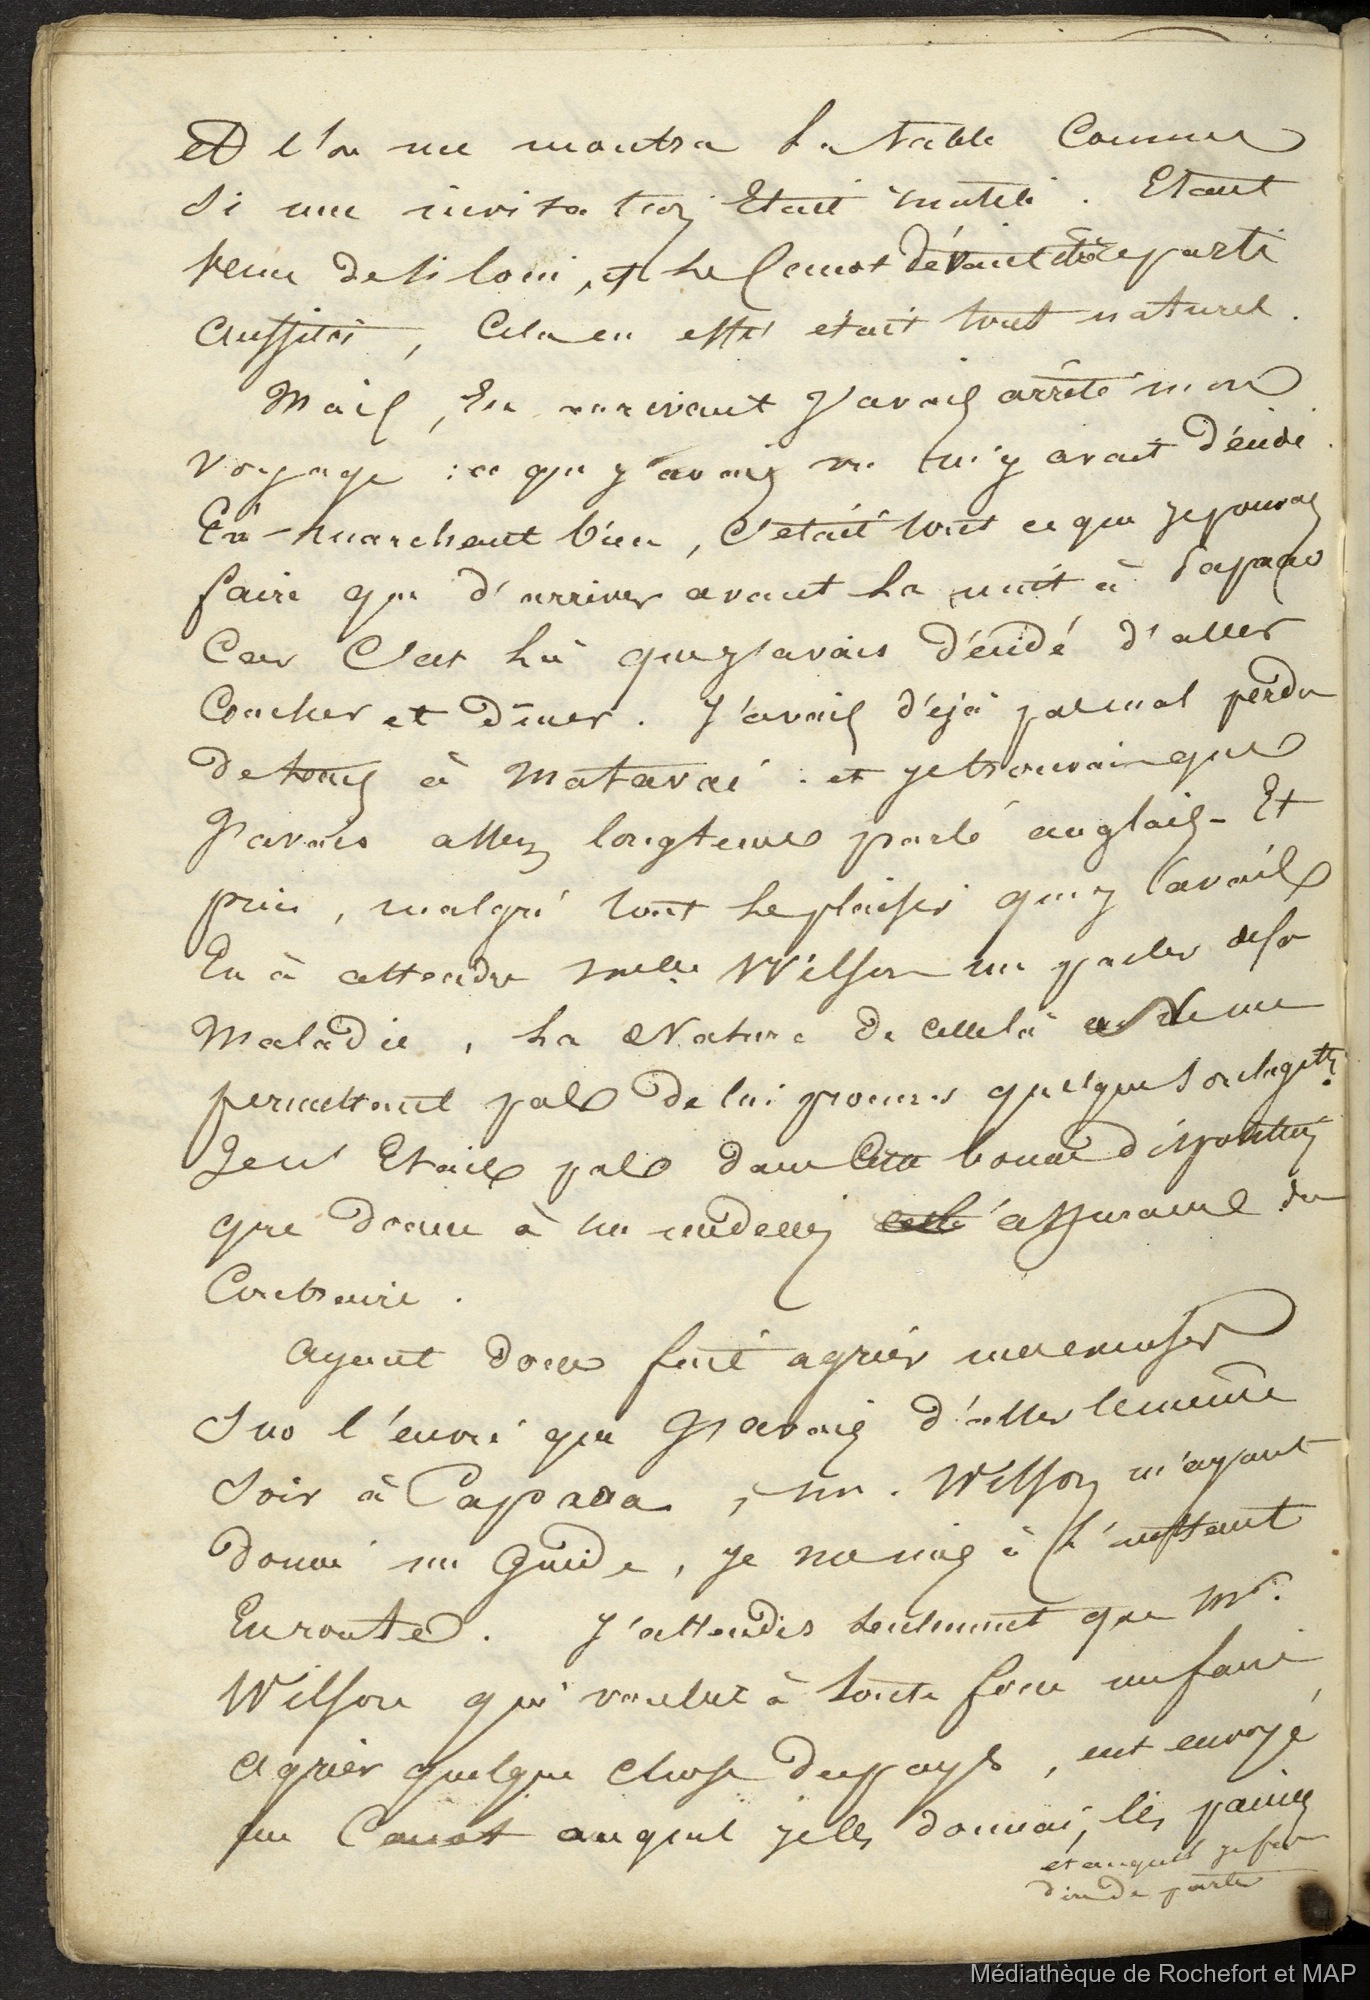 Et l'on me montra la table comme
si une invitation était inutile. Etant
venu de si loin, et le canot reparti
aussitôt, cela en effet était tout naturel.
Mais, En arrivant J'avais arrêté mon
voyage : ce que j'avais vu m'y avait décidé.
En marchant bien, C'était tout ce que je pouvais
faire que d'arriver avant la nuit à Papaoa
Car C'est là que j'avais décidé d'aller
Coucher et Dîner. J'avais déjà pas mal perdu
de temps à Matavai . et je trouvais que
J'avais assez longtems parlé anglais - Et
puis, malgré tout le plaisir que j'avais
Eu à attendre Melle Wilson me parler de sa
Maladie, La Nature de celle là ne me
permettant pas De lui procurer quelque soulagett.
Je n'Etais pas dans cette bonne disposition
que donne à un médecin l'assurance du
Contraire.
Ayant donc fait agréer mes excuses
Sur l'envie que J'avais d'aller le même
Soir à Papaoa, Mr. Wilson m'ayant
Donné un Guide, je me mis à l'instant
En route. J'attendis seulement que Mr.
Wilson qui voulut à toute force me faire
Agréer quelque chose du pays, eut envoyé
au Canot auquel je les donnai, les
et auquel je fis
dire de partir
Médiathèque de Rochefort et MAP